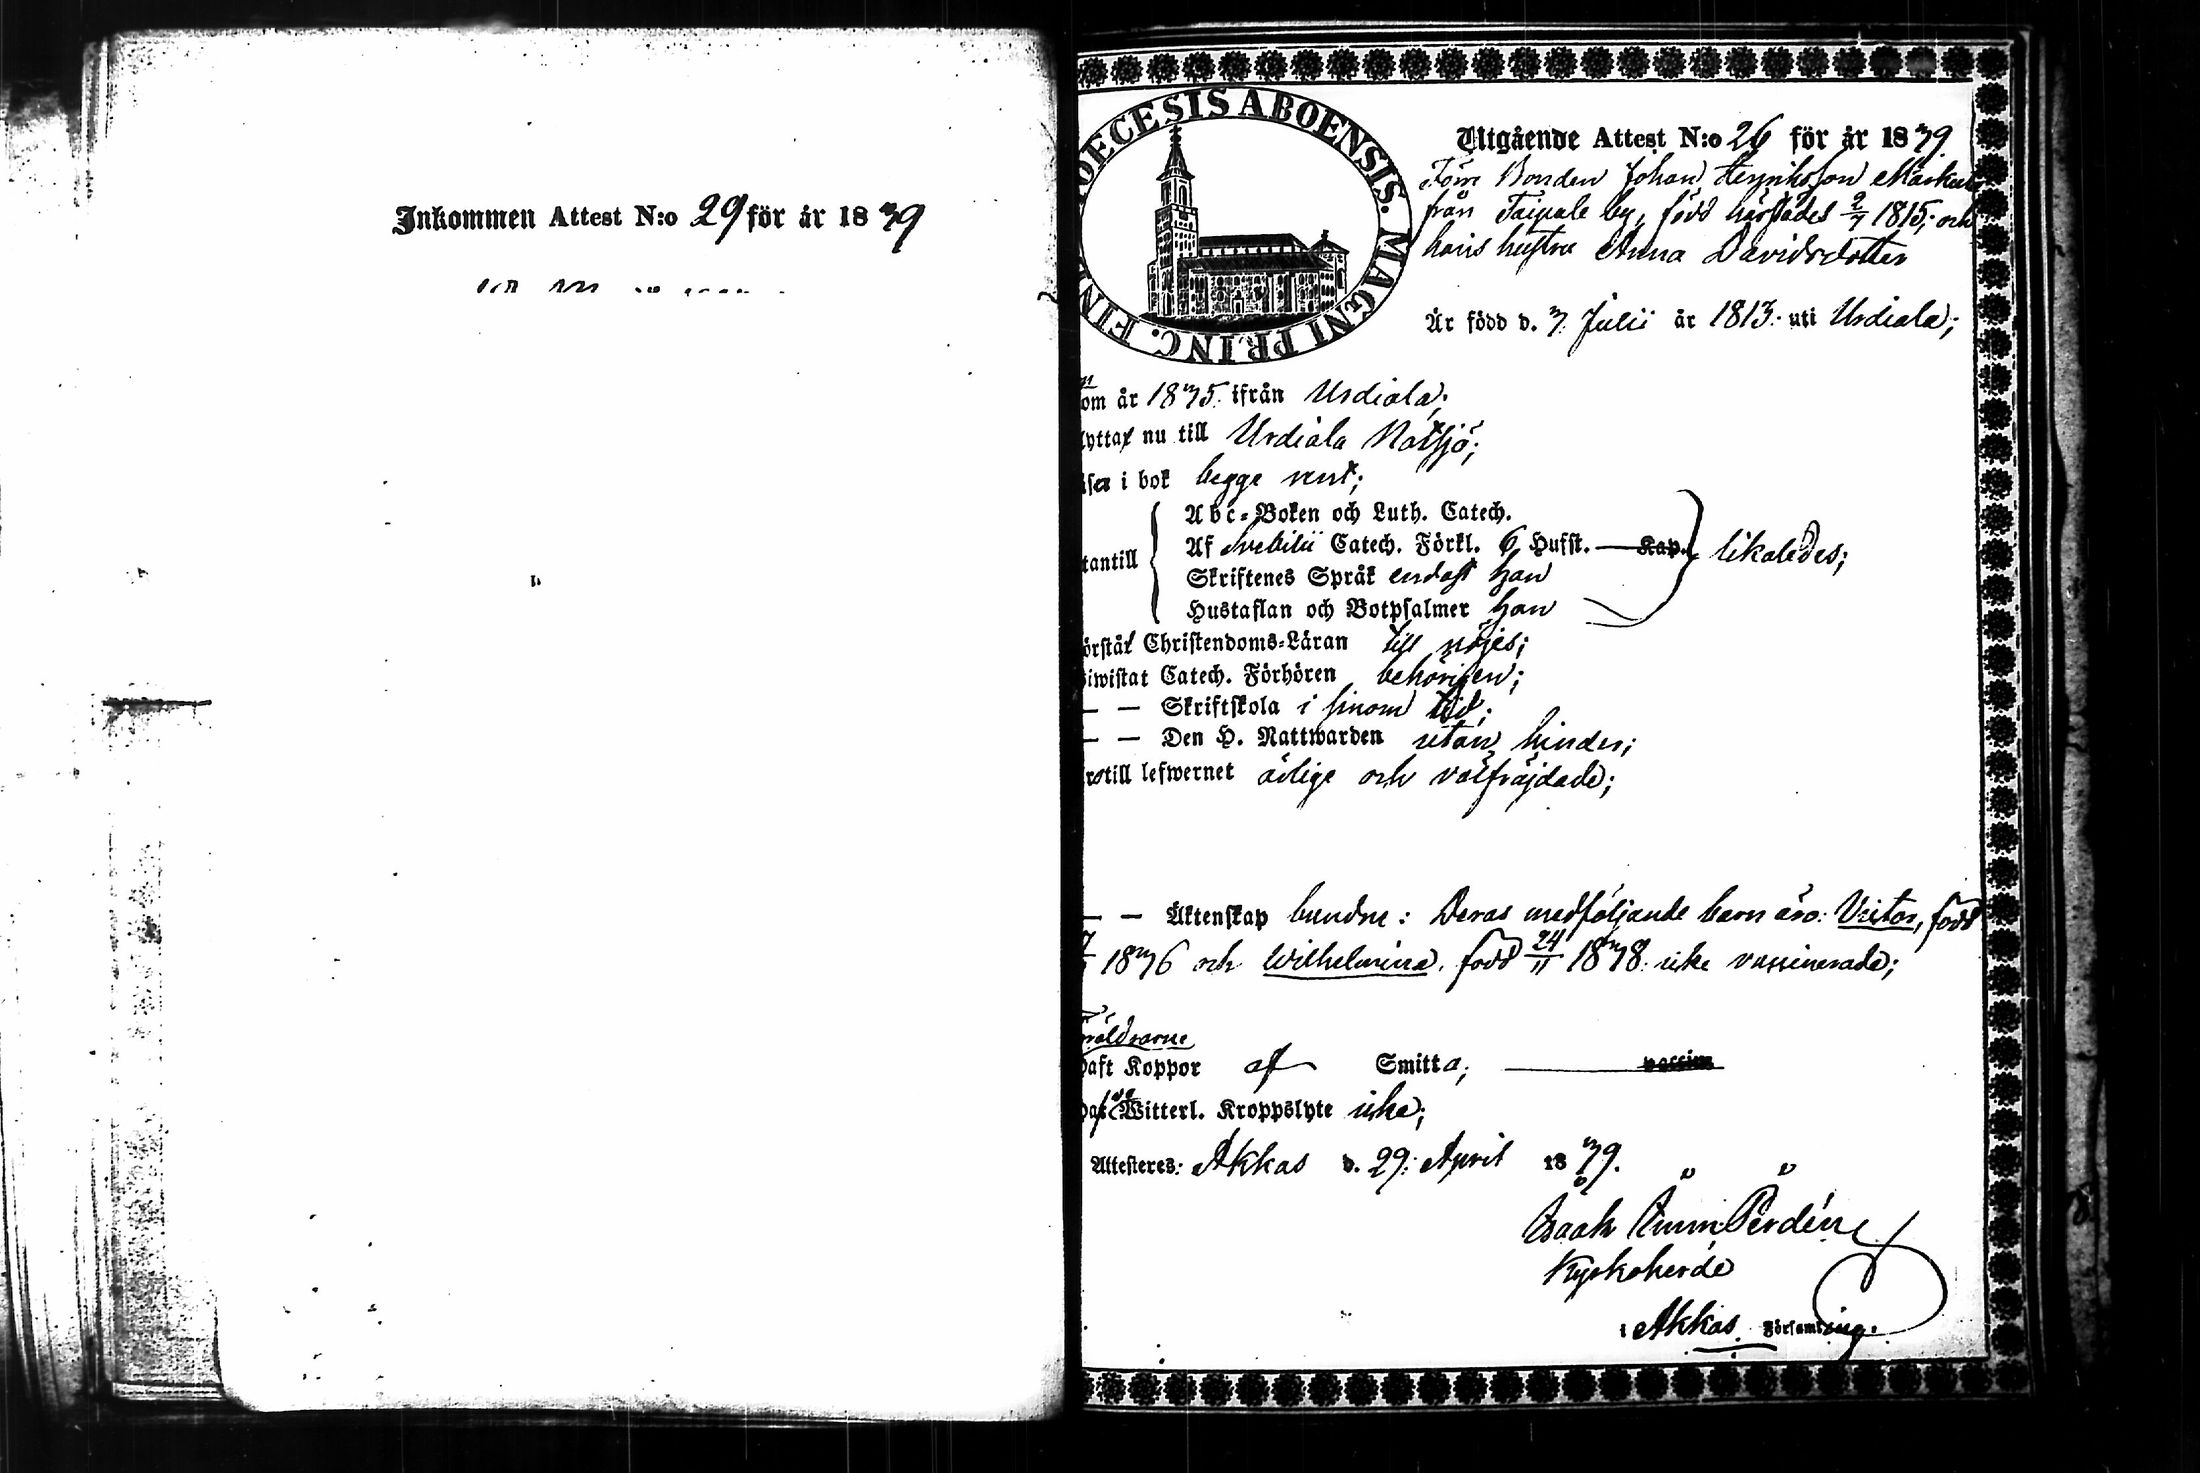 Inkommen Attest N:o 29 för år 1839
DIOECESIS ABOENSIS. MAGNI PRINC. FIN
Utgående Attest N:o 26 för år 1839
Förre Bonden Johan Henriksson
från Taipale by, född härstädes 2/7 1815; och
hans hustru Anna Davidsdotter
Är född d. 7. Julii år 1813. uti Urdiala;
om år 1835. ifrån Urdiala;
lyttar nu till Urdiala Nötsjö;
äser i bok begge rent;
Abc-Boken och Luth. Catech.
Af Svebilii Catech. Förkl. 6 Hufst. — Kap. likaledes;
tantill
Skriftenes Språk endast han
Hustaflan och Botpsalmer han
örstår Christendoms-Läran till nöjes;
iwistat Catech. Förhören behörigen;
— — Skriftskola i sinom tid;
— — Den H. Nattwarden utan hinder;
till lefwernet ärlige och välfräjdade;
— — Äktenskap bundne: Deras medföljande barn äro: Victor, född
1836 och Wilhelmina, född 24/11 1838. icke vaccinerade;
räldrarne
haft Koppor af Smitta; vaccin
Witterl. Kroppslyte icke;
Attesteres: Akkas d. 29. April 1839.
Isaak Perdén
Kyrkoherde
i Akkas Församling.